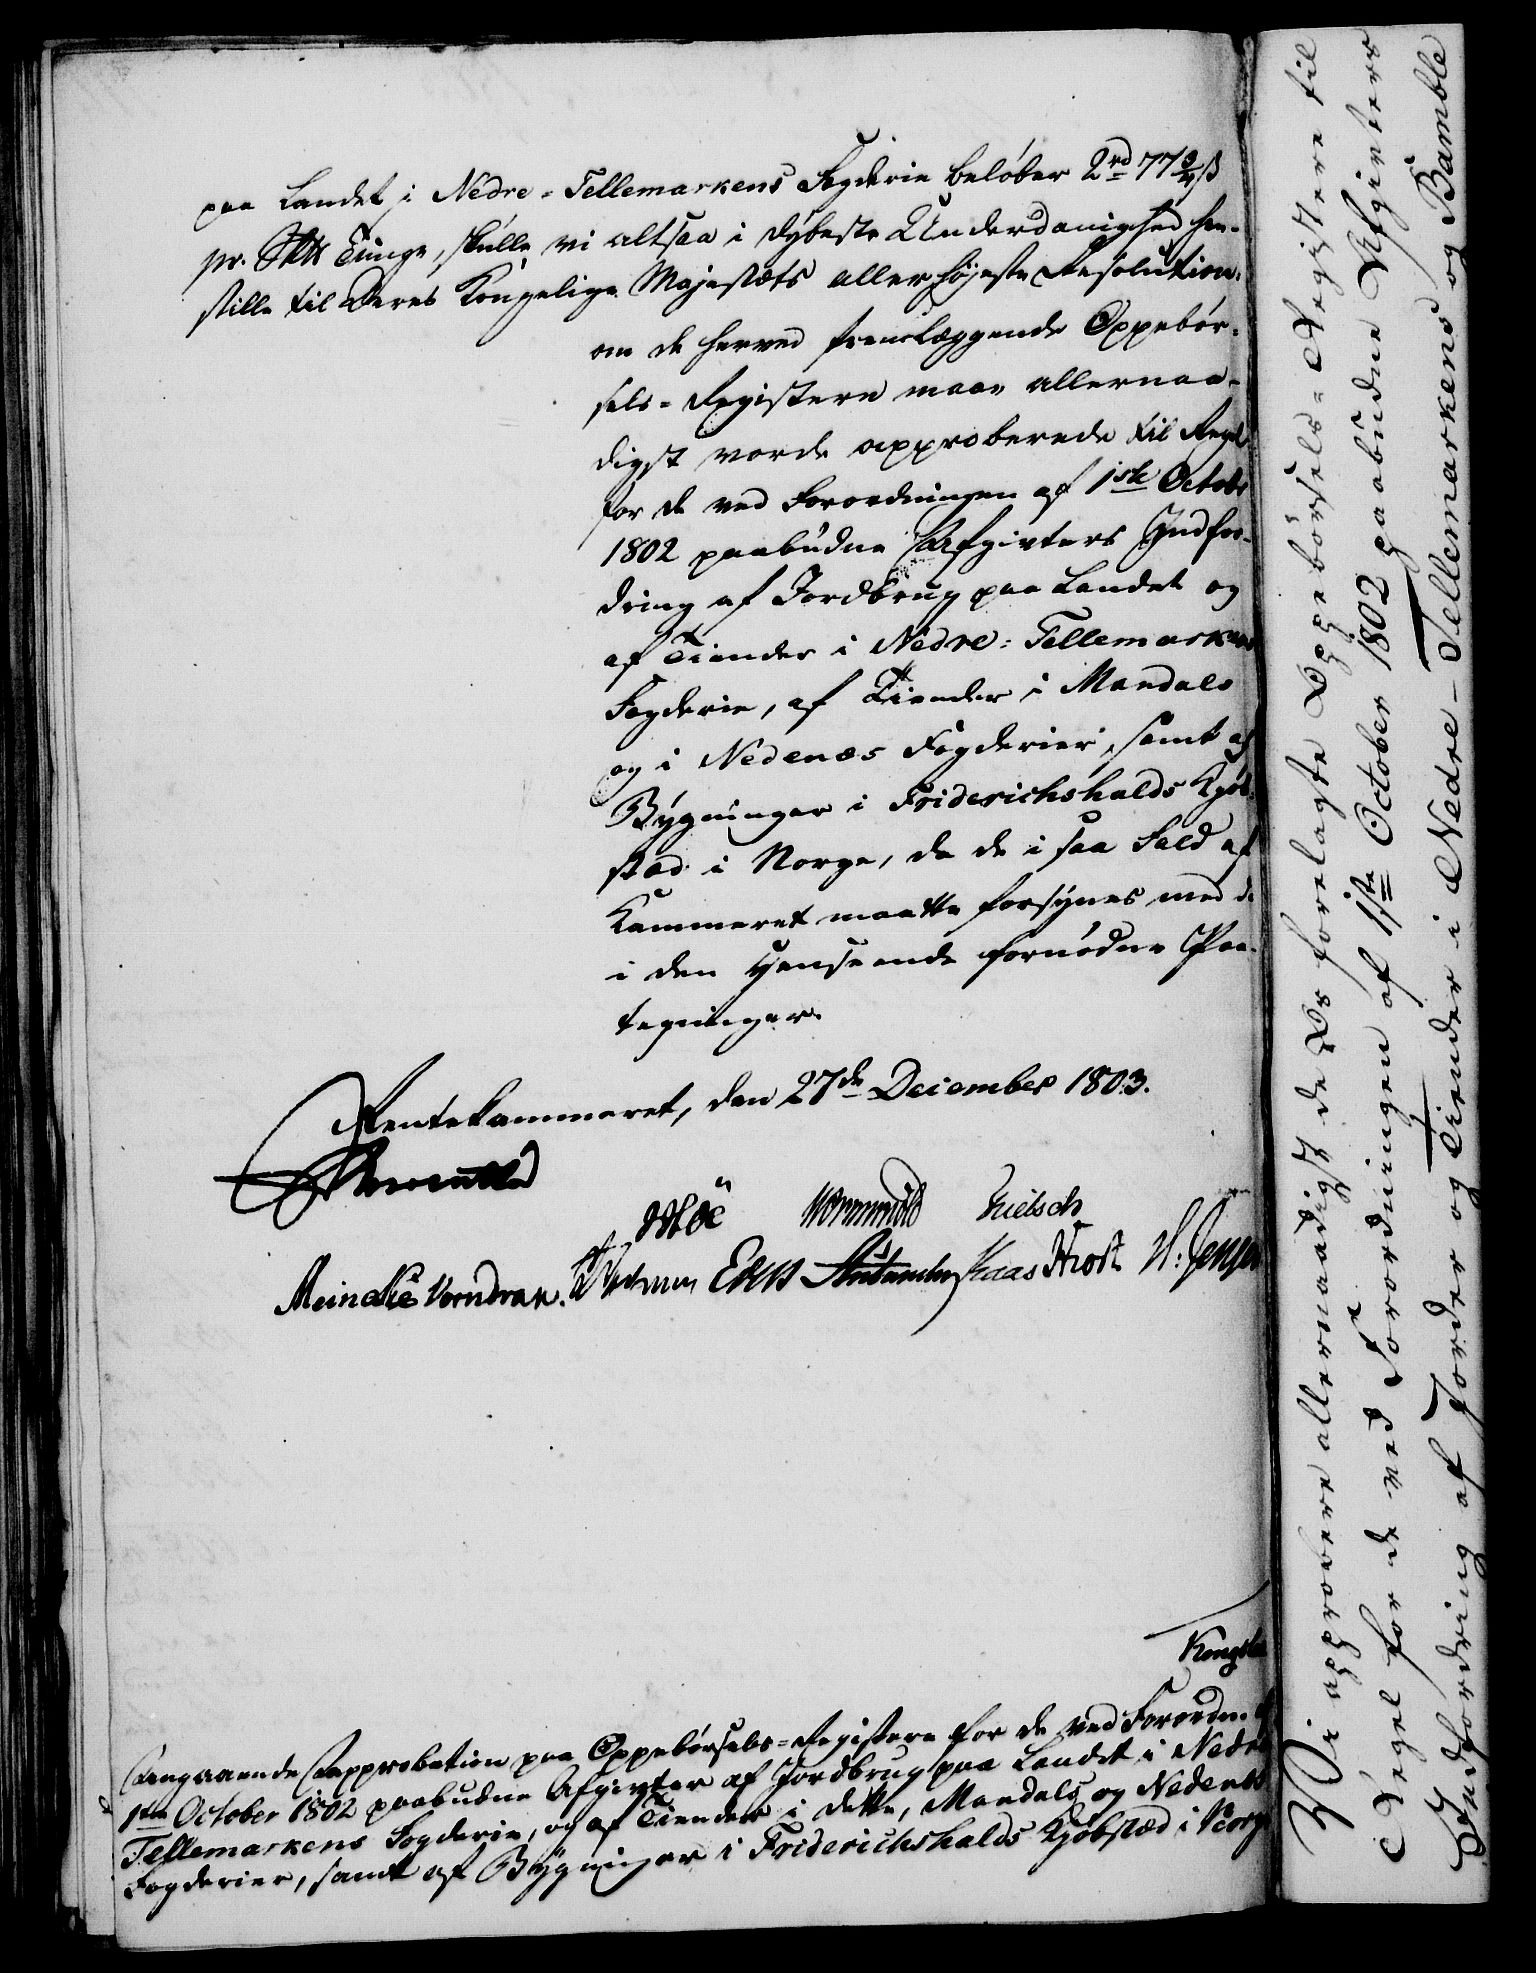 paa Landet i Nedre-Tellemarkens Fogderie beløber 2 rd 77 3/4 ß
pr. Tunge, skulle vi altsaa i dybeste Underdanighed hen-
stille til Deres Kongelige Majestæts allerhøjeste Resolution:
om de herved fremlæggende Oppebør-
sels-Registere maae allernaa-
digst vorde approberede til Regel
for de ved Forordningen af 1ste Octobr
1802 paabudne Afgivters Indfor-
dring af Jordbrug paa Landet og
af Tiender i Nedre-Tellemarkens
Fogderie, af Tiender i Mandals
og i Nedenæs Fogderier, samt af
Bygninger i Friderichshalds Kjøb-
stad i Norge, da de i saa Fald af
Kammeret maatte forsynes med de
i den Henseende fornødne Paa-
tegninger.
Rentekammeret, den 27de December 1803.
Wormskiold
Meincke Vorndran. Kaas Frost H: Jensen
Kongsb
Angaaende Approbation paa Oppebørsels-Registere for de ved Forordn. af
1ste October 1802 paabudne Afgivter af Jordbrug paa Landet i Nedre
Tellemarkens Fogderie, og af Tiender i dette, Mandals og Nedenæs
Fogderier, samt af Bygninger i Friderichshalds Kjøbstæd i Norge
Vi approbere allernaadigst de Os forelagte Oppebørsels-Registere til
Regel for de ved Forordningen af 1ste October 1802 paabudne Afgivters
Indfordring af Jorder og Tiender i Nedre-Tellemarkens og Bamble